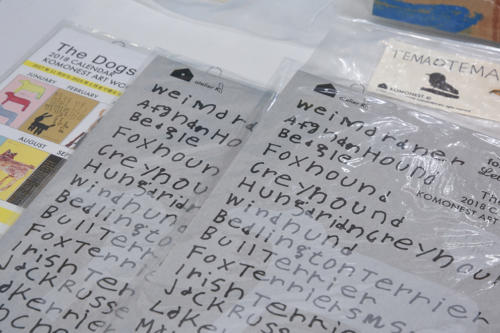 The Dogs
2018 CALENDAR
KOMONEST ART WO
JUNUARY
FEBRUARY
AUGUST
atelier
Weimara
Afghan Ho
Beagle
Foxhoun
Greyhou
Hungaria
Windhund
Bedlington
Bull Terrie
Fox Terrie
Irish Ter
Jack Russe
Lakerrie
atelier
Weimaraner
Afghan Hound
Beagle
Foxhound
Greyhound
HungarianGreyhou
Windhund
Bedlington Terrier
Bull Terrier
Fox Terrier
Irish Terrier
Jack Russe
Lake
TEMAOTEMA
KOMONEST
The
2018 C
KOMONEST AR